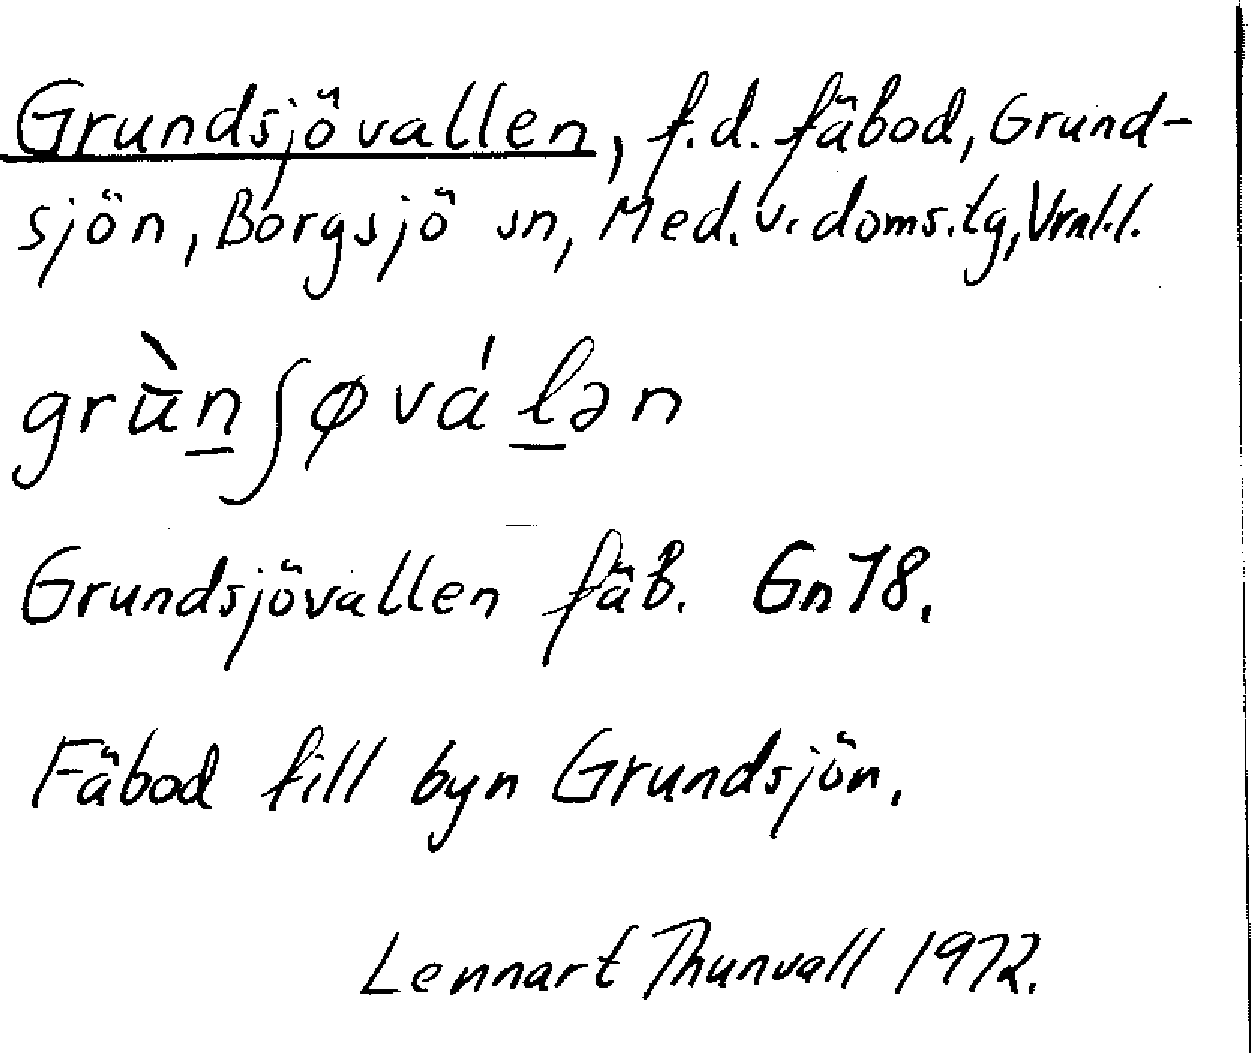 Grundsjövallen, f.d. fäbod, Grund-
sjön, Borgsjö sn, Med. v. doms.tg, Vrnl.l.
grùn̲ʃøvá l̲ən
Grundsjövallen fäb. Gn78.
Fäbod till byn Grundsjön.
Lennart Thunvall 1972.